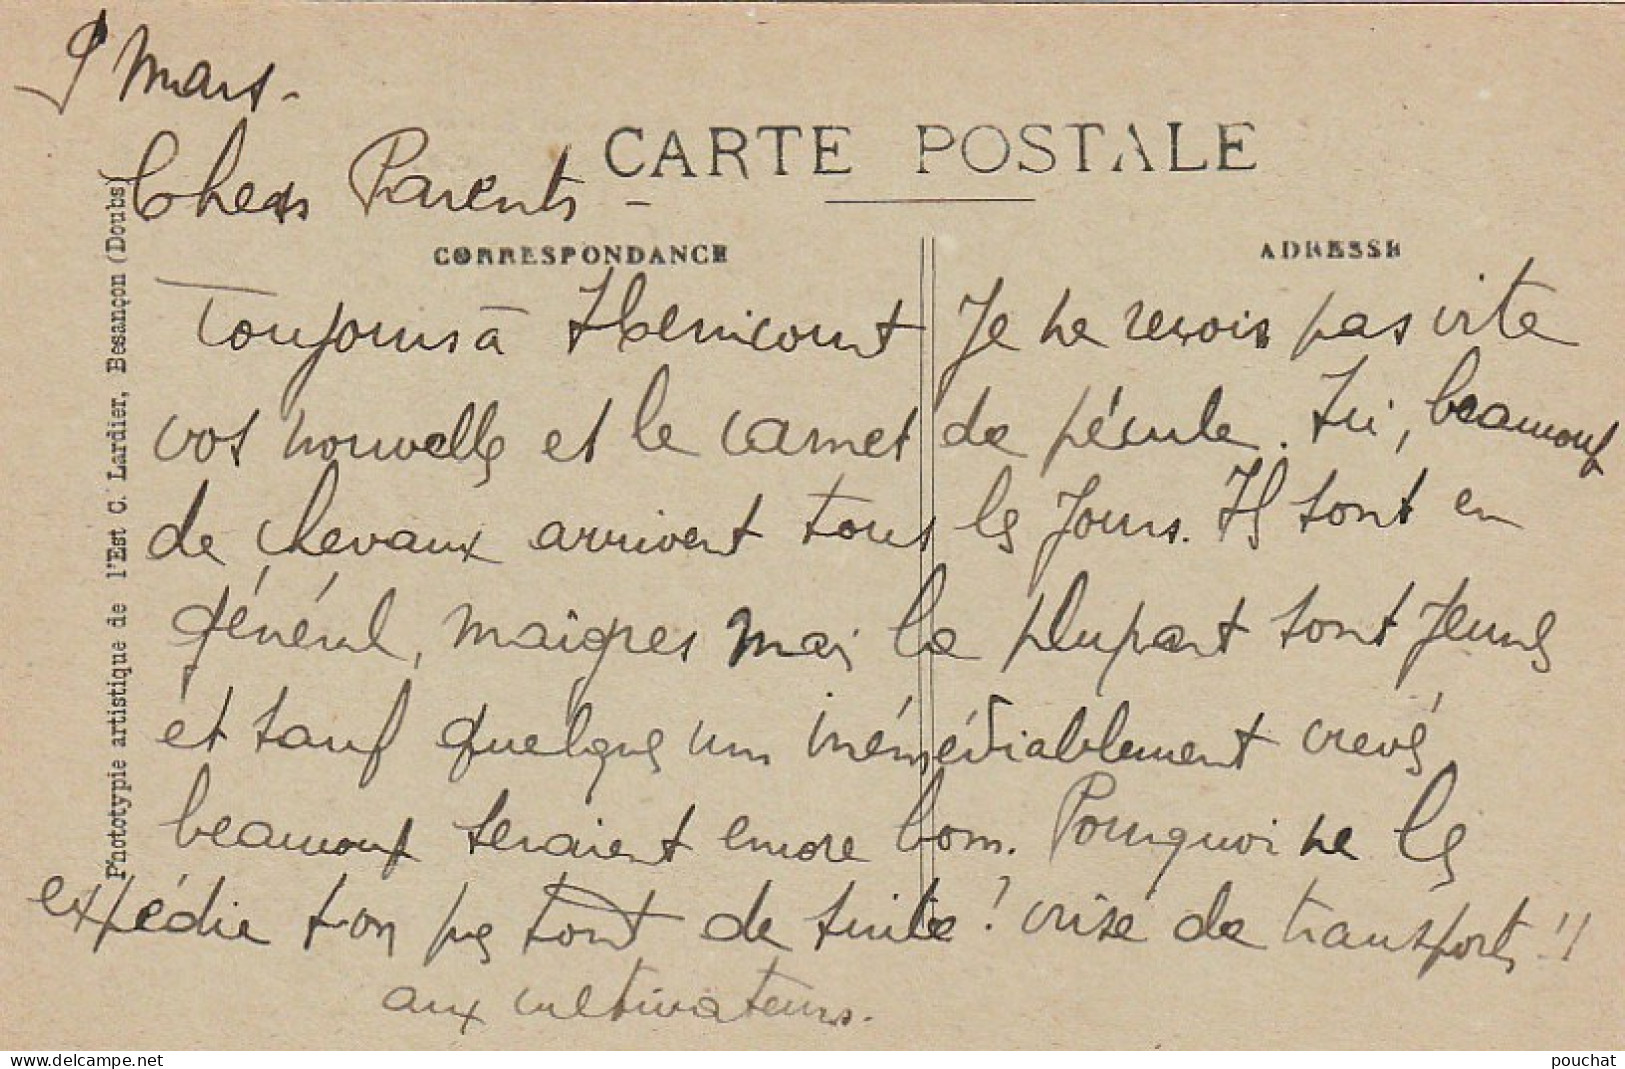 9 Mars -
Chers Parents -
CARTE POSTALE
CORRESPONDANCE
ADRESSE
Toujours à Héricourt Je ne reçois pas vite
vos nouvelles et le carnet de pécule. Ici, beaucoup
de chevaux arrivent tous les jours. Ils sont en
général, maigres mais la plupart sont jeunes
et sauf quelques uns irrémédiablement crevés
beaucoup seraient encore bons. Pourquoi ne les
expédie t-on pas tout de suite! crise de transports!!
aux cultivateurs.
Phototypie artistique de l'Est C. Lardier, Besançon (Doubs)
www.delcampe.net
pouchat